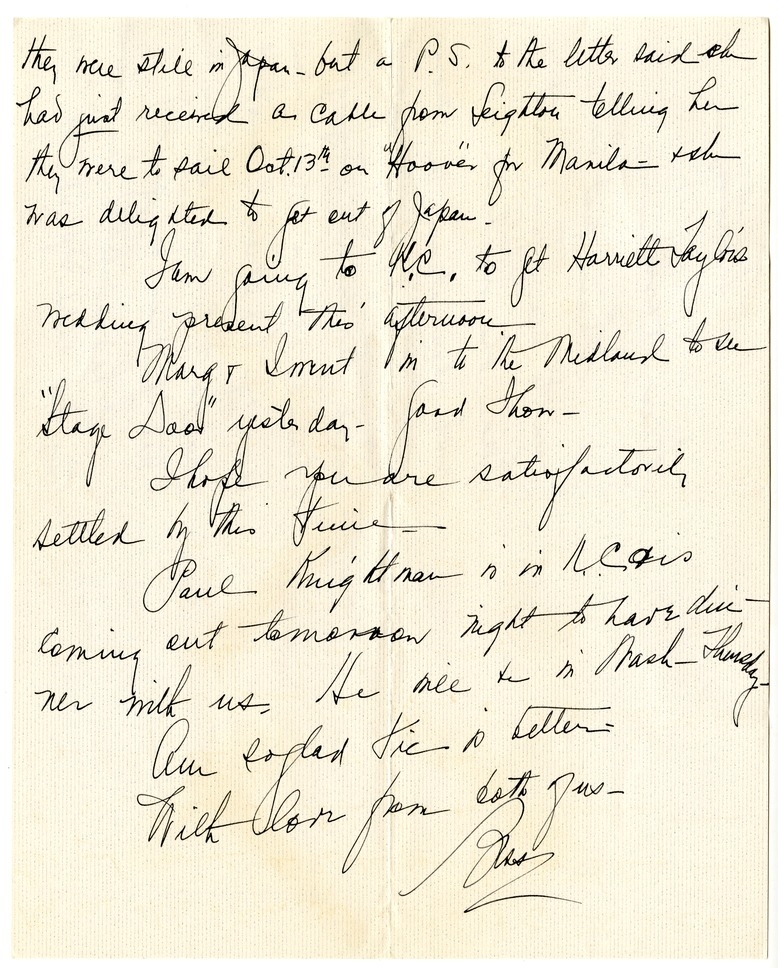 they were still in Japan - but a P.S. to the letter said she
had just received a cable from Leighton telling her
they were to sail Oct. 13th on "Hoover" for Manila - & she
was delighted to get out of Japan.
I am going to K.C. to get Harriett Taylor's
wedding present this afternoon
Marg & I went in to the Midland to see
"Stage Door" yesterday - Good Show -
I hope you are satisfactorily
settled by this time -
Paul Knightman is in K.C. & is
coming out tomorrow night to have din-
ner with us. He will be in Wash - Thursday -
Am so glad Vic is better -
With love from both of us -
Bess